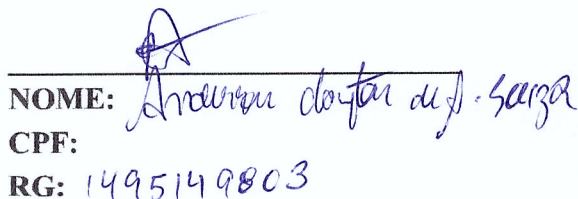 NOME: Anderson de A. Souza
CPF:
RG: 1495149803